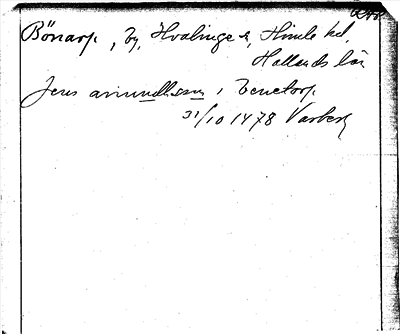 Bönarp, by, Hvalinge s, Himle hd,
Hallands län
Jens amundsson i Benetorp
31/10 1478 Varberg